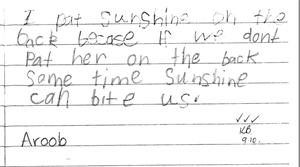 I pat sunshine on the
back becase if we dont
Pat her on the back
Some time Sunshine
can bite us.
✓✓✓
KB
Aroob
9.10.